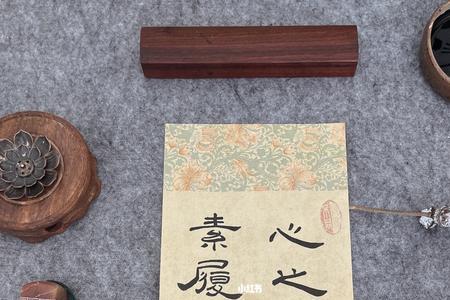 心之
素履
小红书